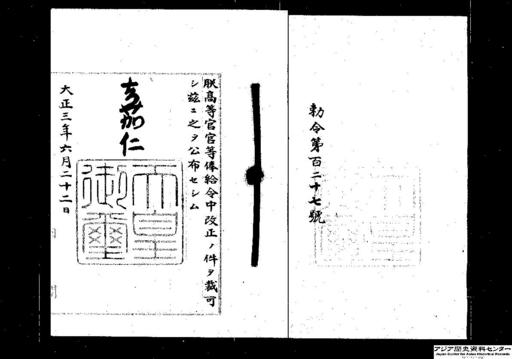 勅令第百二十七號
朕高等官官等俸給令中改正ノ件ヲ裁可
シ茲ニ之ヲ公布セシム
嘉仁
天皇
御璽
大正三年六月二十二日
アジア歴史資料センター
Japan Center for Asian Historical Records